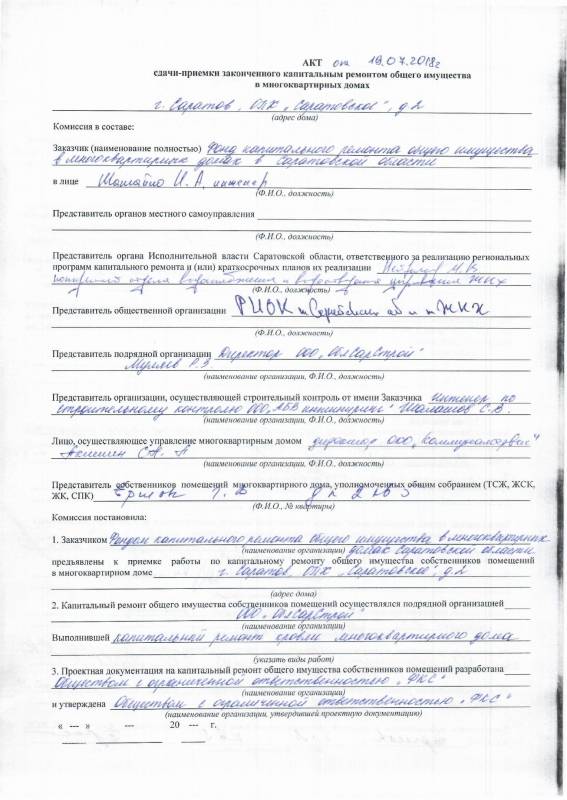 АКТ от 19.07.2018г
сдачи-приемки законченного капитальным ремонтом общего имущества
в многоквартирных домах
г. Саратов, ОПХ „Саратовское", д.2
(адрес дома)
Комиссия в составе:
Заказчик (наименование полностью) Фонд капитального ремонта общего имущества
в многоквартирных домах в Саратовской области
в лице И.А, инженер
(Ф.И.О., должность)
Представитель органов местного самоуправления
(Ф.И.О., должность)
Представитель органа Исполнительной власти Саратовской области, ответственного за реализацию региональных
программ капитального ремонта и (или) краткосрочных планов их реализации
отдела водоснабжения и водоотведения управления ЖКХ
(Ф.И.О., должность)
Представитель общественной организации
(Ф.И.О., должность)
Представитель подрядной организации Директор ООО „ОблСарСтрой"
(наименование организации, Ф.И.О., должность)
Представитель организации, осуществляющей строительный контроль от имени Заказчика инженер по
строительному контролю ООО „АБВ инжиниринг" Шалашов С.В.
(наименование организации, Ф.И.О., должность)
Лицо, осуществляющее управление многоквартирным домом директор ООО
(наименование организации, Ф.И.О., должность)
Представитель собственников помещений многоквартирного дома, уполномоченных общим собранием (ТСЖ, ЖСК,
ЖК, СПК)
(Ф.И.О., № квартиры)
Комиссия постановила:
1. Заказчиком Фондом капитального ремонта общего имущества в многоквартирных
(наименование организации) домах Саратовской области
предъявлены к приемке работы по капитальному ремонту общего имущества собственников помещений
в многоквартирном доме г. Саратов, ОПХ „Саратовское", д.2
(адрес дома)
2. Капитальный ремонт общего имущества собственников помещений осуществлялся подрядной организацией
ООО „ОблСарСтрой"
(наименование организации)
Выполнившей капитальный ремонт кровли многоквартирного дома
(указать виды работ)
3. Проектная документация на капитальный ремонт общего имущества собственников помещений разработана
Обществом с ограниченной ответственностью „ФКС"
(наименование организации)
и утверждена Обществом с ограниченной ответственностью „ФКС"
(наименование организации, утвердившей проектную документацию)
« --- » --- 20 --- г.